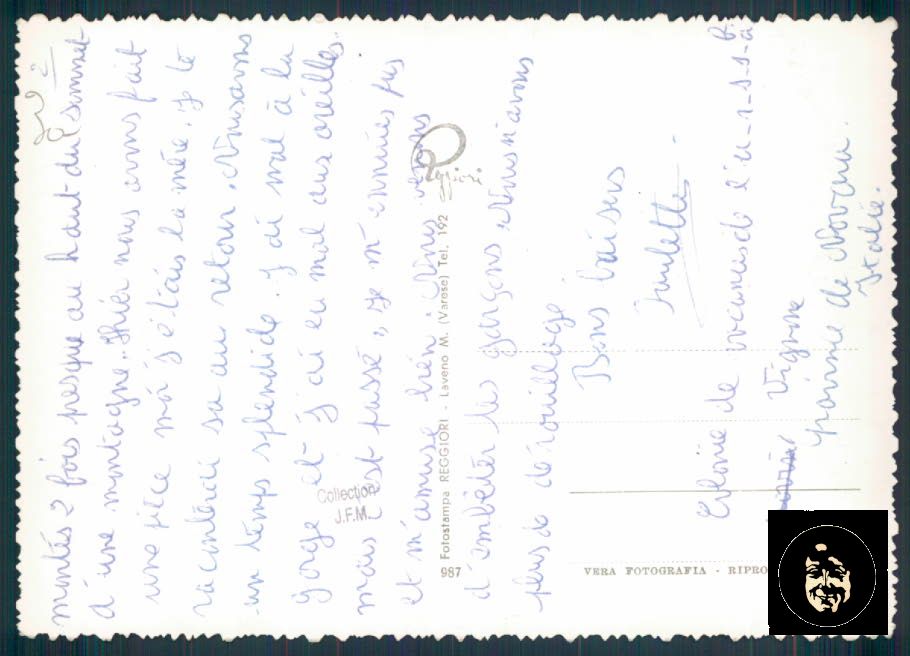 montés 2 fois presque au haut du sommet
d'une montagne. Hier nous avons fait
une pièce moi j'étais la mère, je te
raconterai sa au retour. Nous avons
un temps splendide. J'ai mal à la
gorge et j'ai eu mal aux oreilles.
mais c'est passé, je m'ennuies pas
et m'amuse bien. Nous venons
d'embêter les garçons. Nous n'avons
plus de
Bons baisers
Paulette
Colonie de vacances de l'
Vignone
province de Novara.
Italie.
Reggiori
Fotostampa REGGIORI - Laveno M. (Varese) Tel. 192
987
VERA FOTOGRAFIA - RIPRO
Collection
J.F.M.